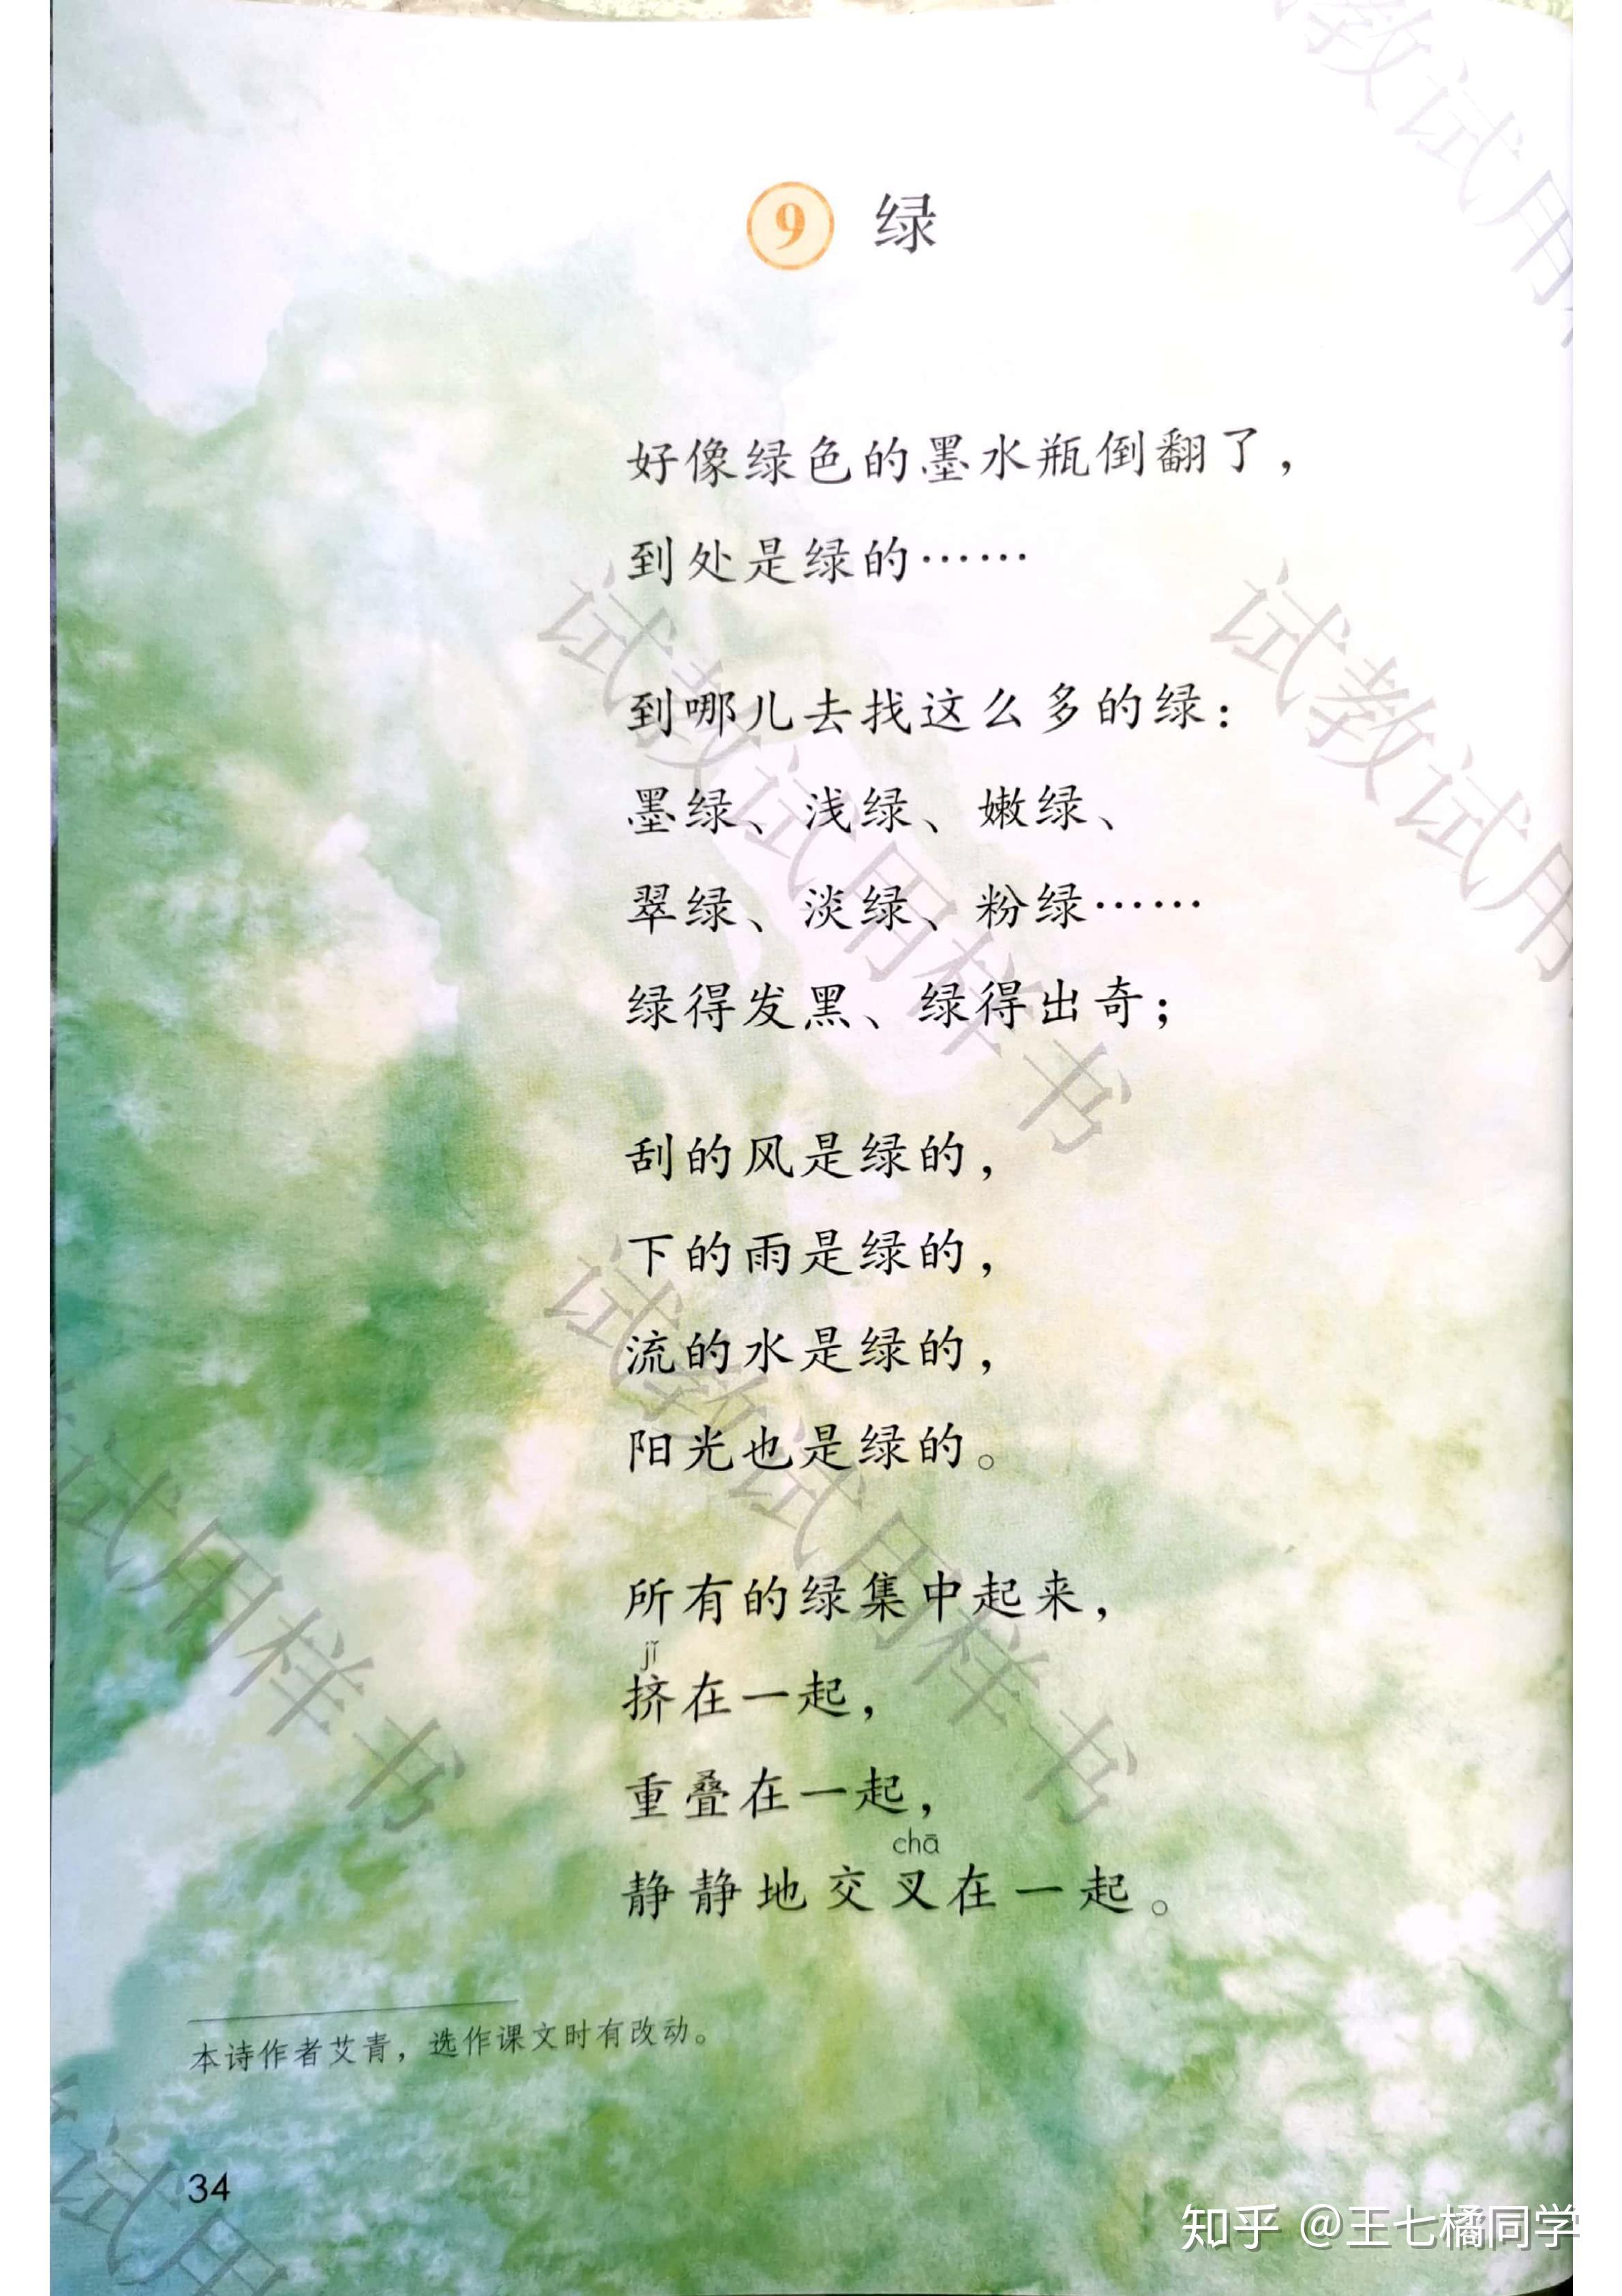 9 绿
好像绿色的墨水瓶倒翻了，
到处是绿的……
到哪儿去找这么多的绿：
墨绿、浅绿、嫩绿、
翠绿、淡绿、粉绿……
绿得发黑、绿得出奇；
刮的风是绿的，
下的雨是绿的，
流的水是绿的，
阳光也是绿的。
所有的绿集中起来，
jǐ
挤在一起，
重叠在一起，
chā
静静地交叉在一起。
本诗作者艾青，选作课文时有改动。
34
知乎 @王七橘同学
教试用样
试教试用样书
试教试用
试教试用样书
试用样书
试用